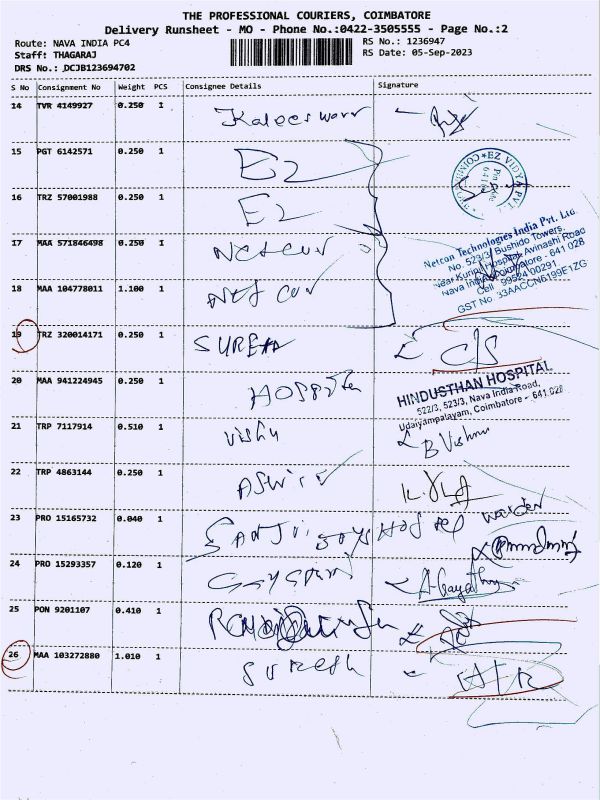 THE PROFESSIONAL COURIERS, COIMBATORE
Delivery Runsheet - MO - Phone No.:0422-3505555 - Page No.:2
Route: NAVA INDIA PC4
RS No.: 1236947
Staff: THAGARAJ
RS Date: 05-Sep-2023
DRS No.: DCJB123694702
S No Consignment No Weight PCS Consignee Details Signature
14 TVR 4149927 0.250 1 Kaleeswarr
15 PGT 6142571 0.250 1 EZ
16 TRZ 57001988 0.250 1 EZ
17 MAA 571846498 0.250 1 Netcon
Netcon Technologies India Pvt. Ltd.
No. 523/3, Bushido Towers,
Near Kurinji Hospital, Avinashi Road
Nava India, Coimbatore - 641 028
Cell : 99524 00291
GST No
18 MAA 104778011 1.100 1 Net con
19 TRZ 320014171 0.250 1 SURESH
20 MAA 941224945 0.250 1 Hospital
HINDUSTHAN HOSPITAL
522/3, 523/3, Nava India Road,
Udaiyampalayam, Coimbatore - 641 028
21 TRP 7117914 0.510 1 Vishnu B Vishnu
22 TRP 4863144 0.250 1 ASwin
23 PRO 15165732 0.040 1 SANJUi boys Hostel warden
24 PRO 15293357 0.120 1 A. Gayathri
25 PON 9201107 0.410 1
26 MAA 103272880 1.010 1 SURESh